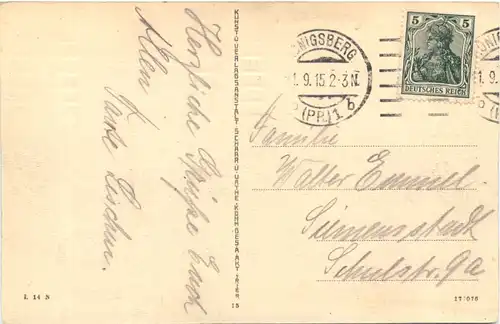 Herzliche Grüße Euch
Allen
Tante Lieschen.
KUNST- U. VERLAGSANSTALT SCHAAR U. DATHE, KOM.-GES. A. AKT. TRIER.
15
KÖNIGSBERG
1. 9. 15. 2-3 N.
(PR.) 1 b
5 5
DEUTSCHES REICH
Familie
Walter Emmel.
Siemensstadt
Schulstr. 9a
L 14 S
17/076